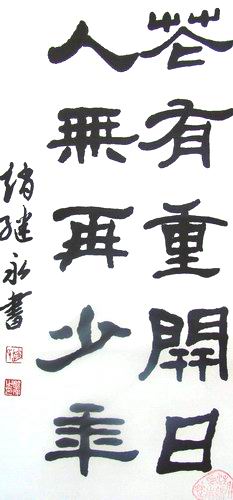 花有重開日
人無再少年
趙継永書